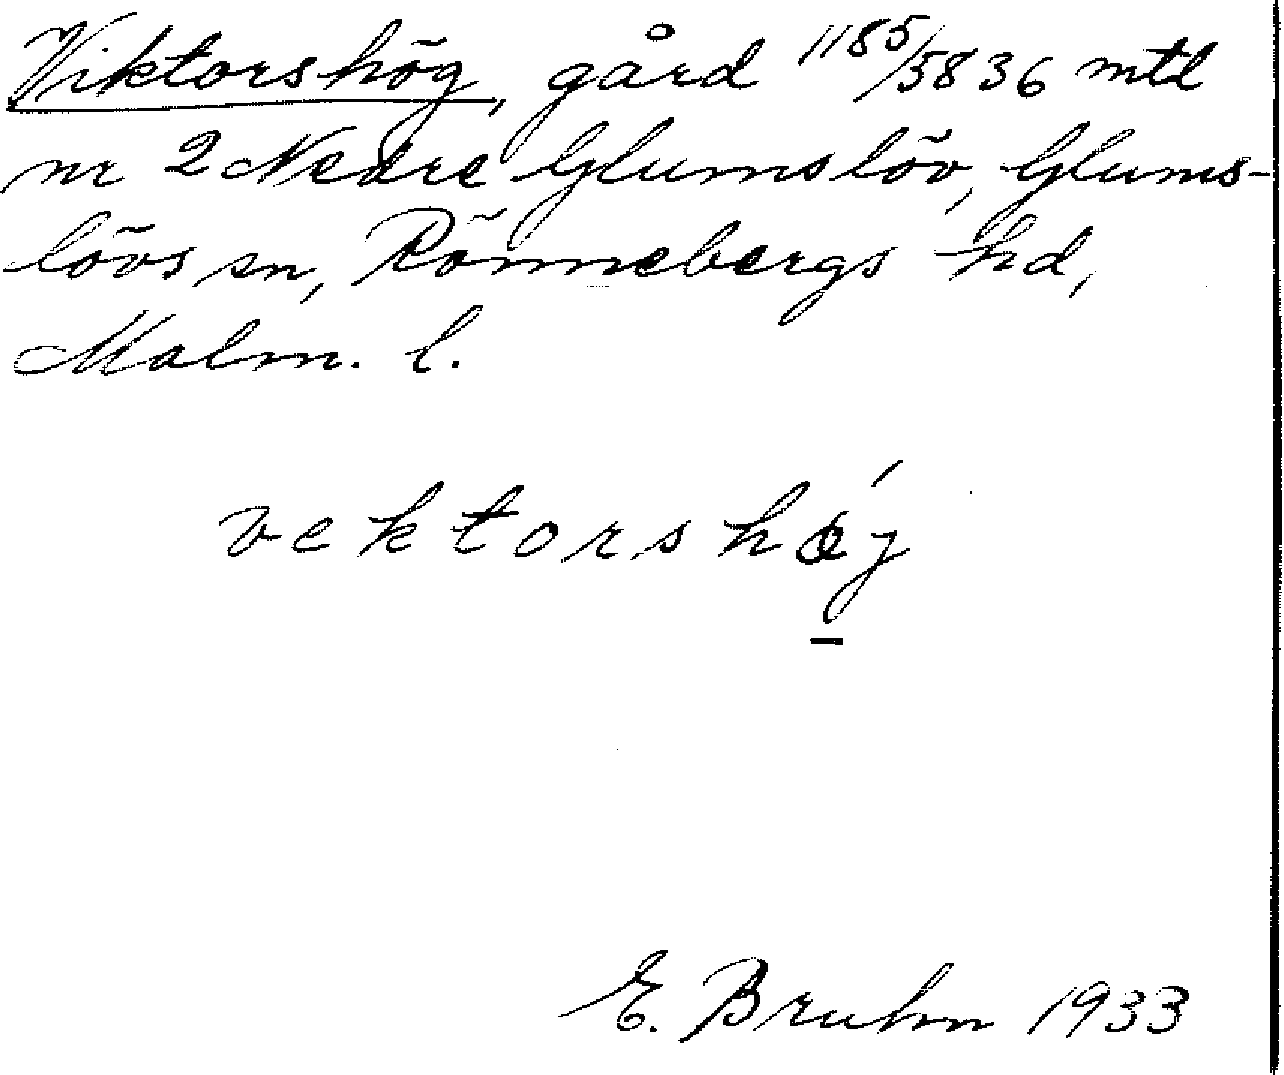 Viktorshög, gård 1185/5836 mtl
nr 2 Nedre Glumslöv, Glums-
lövs sn, Rönnebergs hd,
Malm. l.
vektorshöj
E. Bruhn 1933